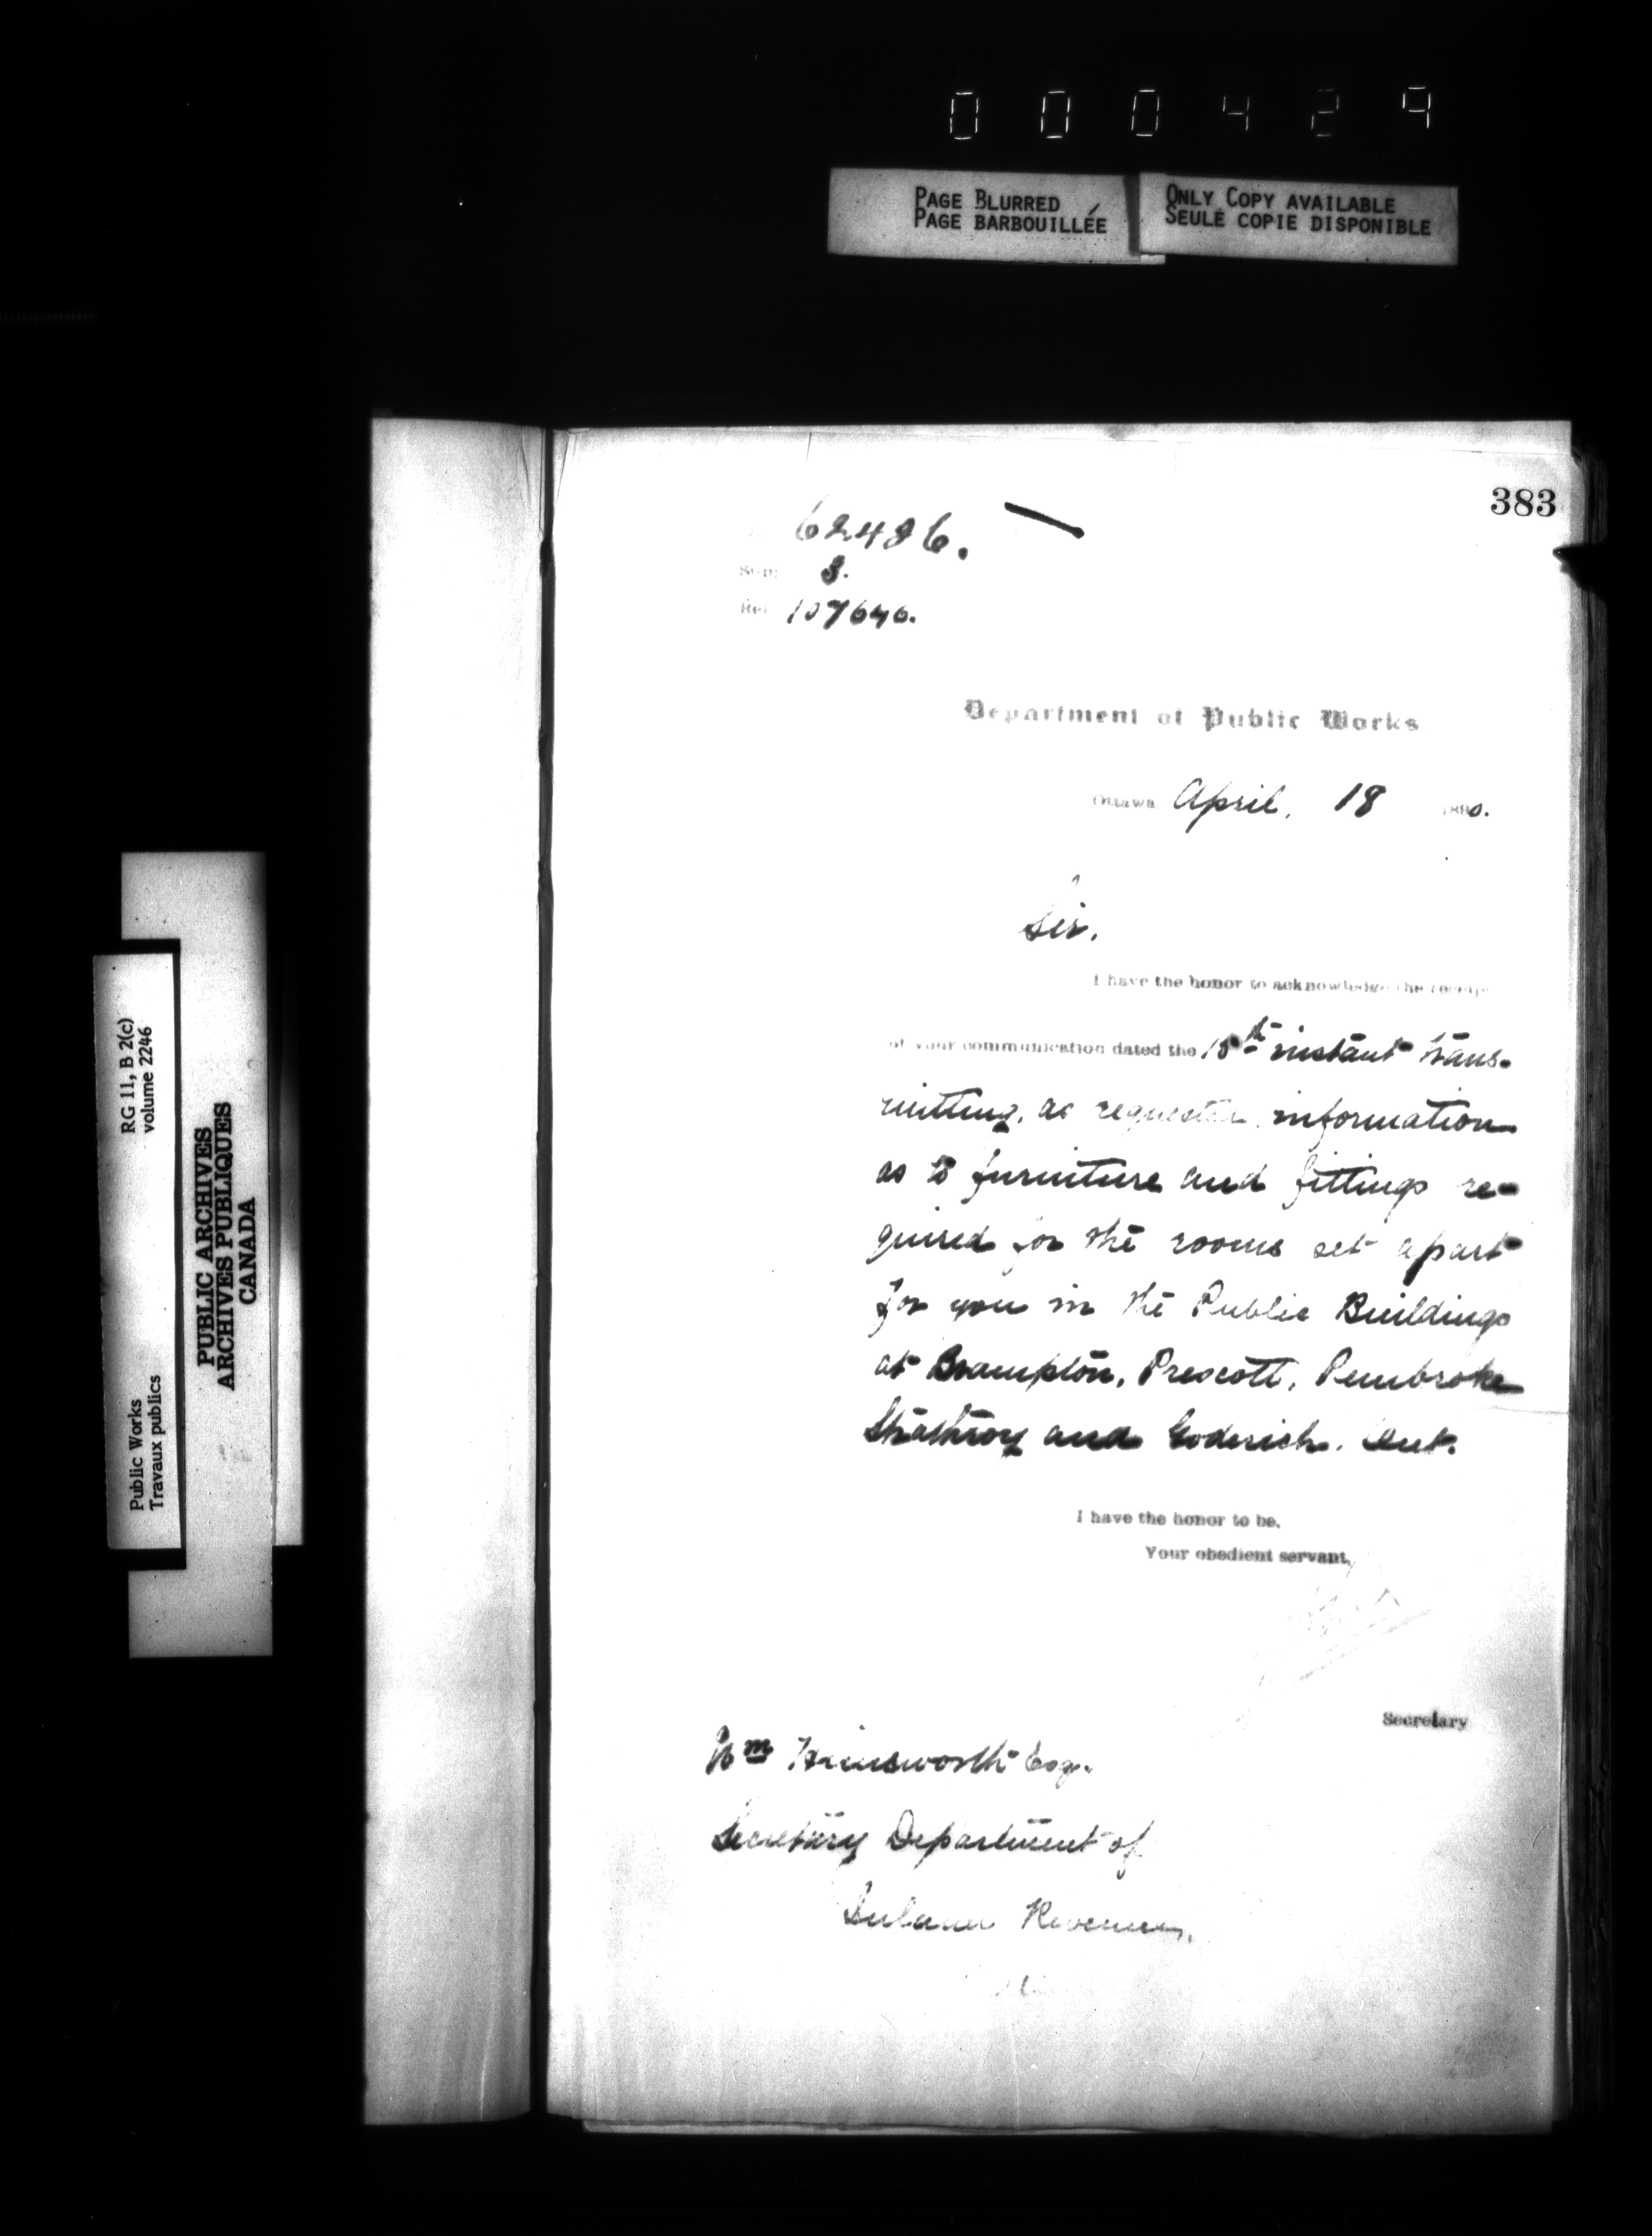 000429
PAGE BLURRED
PAGE BARBOUILLÉE
ONLY COPY AVAILABLE
SEULE COPIE DISPONIBLE
383
62486.
Sub: 3.
Ref 107640.
Department of Public Works
Ottawa April, 18 1890.
Sir,
I have the honor to acknowledge the receipt
of your communication dated the 15th instant trans-
mitting, as requested, information
as to furniture and fittings re-
quired for the rooms set apart
for you in the Public Buildings
at Brampton, Prescott, Pembroke
Strathroy and Goderich. Ont.
I have the honor to be,
Your obedient servant,
Secretary
Wm Himsworth Esq.
Secretary Department of
Inland Revenue,
RG 11, B 2(c)
volume 2246
Public Works
Travaux publics
PUBLIC ARCHIVES
ARCHIVES PUBLIQUES
CANADA